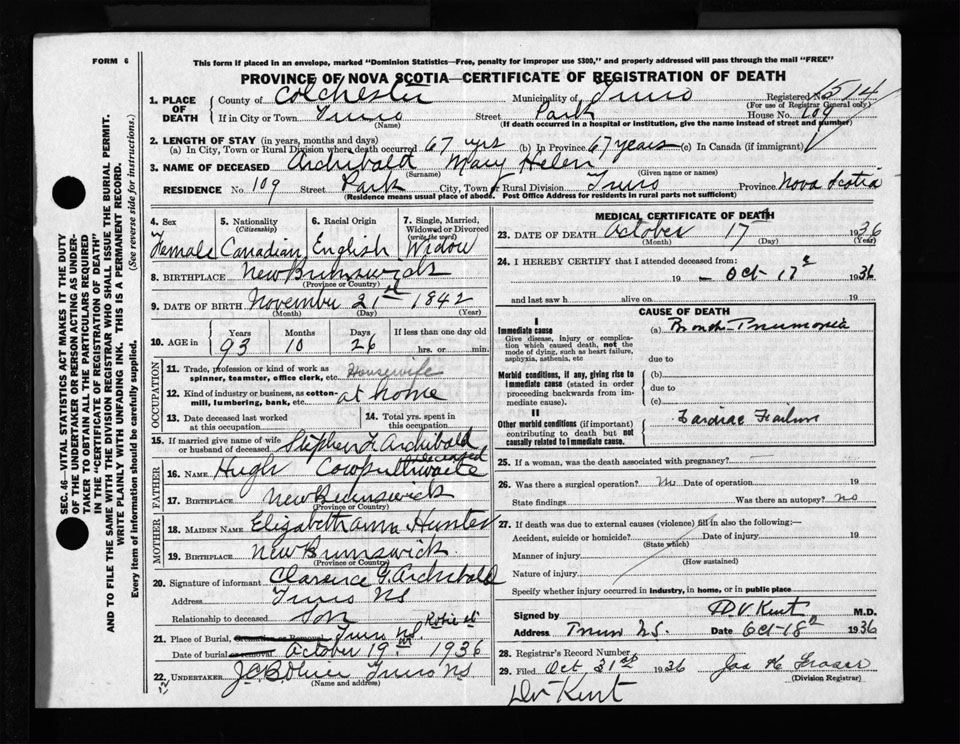 FORM 6
This form if placed in an envelope, marked "Dominion Statistics—Free, penalty for improper use $300," and properly addressed will pass through the mail "FREE"
PROVINCE OF NOVA SCOTIA—CERTIFICATE OF REGISTRATION OF DEATH
1. PLACE OF DEATH
County of Colchester Municipality of Truro Registered No. 1514
(For use of Registrar General only)
If in City or Town Truro Street Park House No. 109
(Name) (If death occurred in a hospital or institution, give the name instead of street and number)
2. LENGTH OF STAY (in years, months and days)
(a) In City, Town or Rural Division where death occurred 67 yrs (b) In Province 67 years (c) In Canada (if immigrant)
3. NAME OF DECEASED Archibald Mary Helen
(Surname) (Given name or names)
RESIDENCE No. 109 Street Park City, Town or Rural Division Truro Province Nova Scotia
(Residence means usual place of abode. Post Office Address for residents in rural parts not sufficient)
4. Sex Female
5. Nationality (Citizenship) Canadian
6. Racial Origin English
7. Single, Married, Widowed or Divorced (write the word) Widow
8. BIRTHPLACE New Brunswick
(Province or Country)
9. DATE OF BIRTH November 21st 1842
(Month) (Day) (Year)
10. AGE in Years Months Days If less than one day old
93 10 26 hrs. or min.
OCCUPATION
11. Trade, profession or kind of work as spinner, teamster, office clerk, etc. Housewife
12. Kind of industry or business, as cotton-mill, lumbering, bank, etc. at home
13. Date deceased last worked at this occupation
14. Total yrs. spent in this occupation
15. If married give name of wife or husband of deceased Stephen F. Archibald deceased
FATHER
16. NAME Hugh Cowperthwaite
17. BIRTHPLACE New Brunswick
(Province or Country)
MOTHER
18. MAIDEN NAME Elizabeth Ann Hunter
19. BIRTHPLACE New Brunswick
(Province or Country)
20. Signature of informant Clarence G. Archibald
Address Truro NS
Relationship to deceased Son
21. Place of Burial, Cremation or Removal Truro NS. Robie st
Date of burial or removal October 19th 1936
22. UNDERTAKER Truro NS
(Name and address)
MEDICAL CERTIFICATE OF DEATH
23. DATE OF DEATH October 17th 1936
(Month) (Day) (Year)
24. I HEREBY CERTIFY that I attended deceased from:
19 - Oct-17 1936
and last saw h alive on 19
CAUSE OF DEATH
I
Immediate cause (a) Broncho-Pneumonia
Give disease, injury or complication which caused death, not the mode of dying, such as heart failure, asphyxia, asthenia, etc
due to
Morbid conditions, if any, giving rise to immediate cause (stated in order proceeding backwards from immediate cause).
(b)
due to
(c)
II
Other morbid conditions (if important) contributing to death but not causally related to immediate cause.
Cardiac Failure
25. If a woman, was the death associated with pregnancy?
26. Was there a surgical operation? No Date of operation 19
State findings Was there an autopsy? no
27. If death was due to external causes (violence) fill in also the following:—
Accident, suicide or homicide? Date of injury 19
(State which)
Manner of injury
(How sustained)
Nature of injury
Specify whether injury occurred in industry, in home, or in public place
Signed by H.V. Kent M.D.
Address Truro N.S. Date Oct-18 1936
28. Registrar's Record Number
29. Filed Oct 31st 1936 Jas H Fraser
(Division Registrar)
Dr Kent
SEC. 46—VITAL STATISTICS ACT MAKES IT THE DUTY
OF THE UNDERTAKER OR PERSON ACTING AS UNDERTAKER TO OBTAIN ALL THE PARTICULARS REQUIRED
IN THE "CERTIFICATE OF REGISTRATION OF DEATH"
AND TO FILE THE SAME WITH THE DIVISION REGISTRAR WHO SHALL ISSUE THE BURIAL PERMIT.
WRITE PLAINLY WITH UNFADING INK. THIS IS A PERMANENT RECORD.
Every item of information should be carefully supplied. (See reverse side for instructions.)